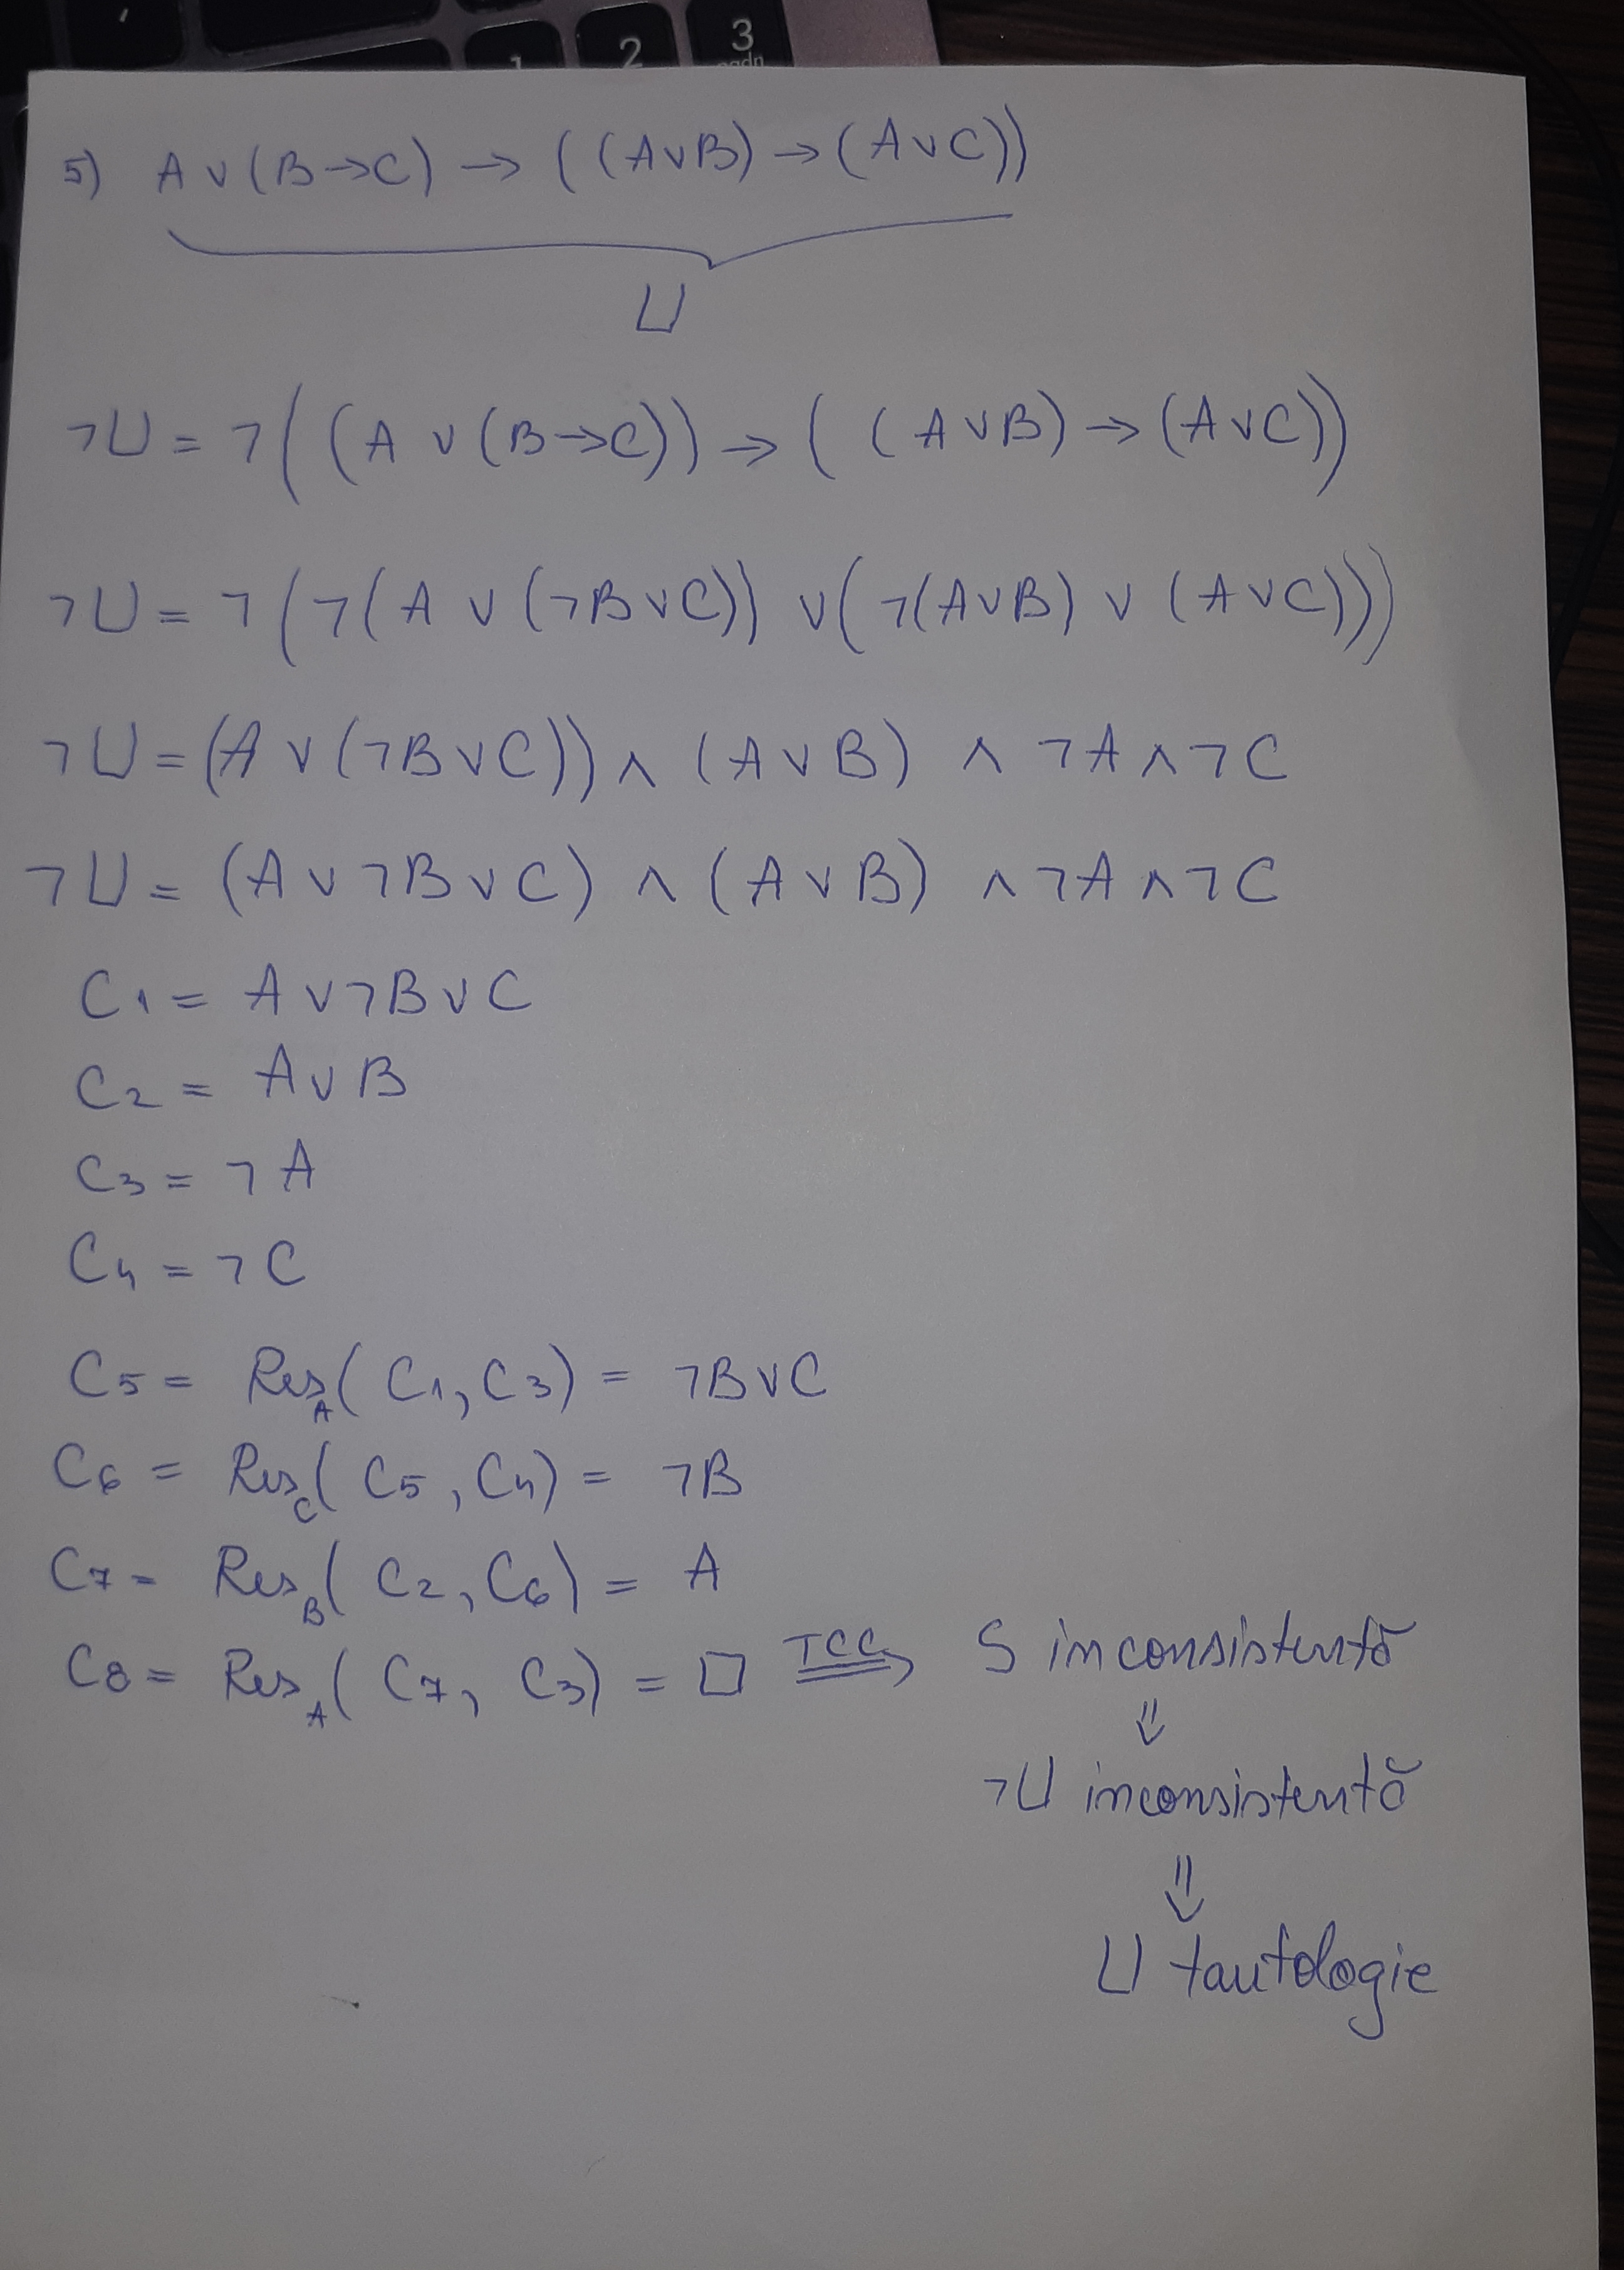 1 2 3
pgdn
5) A ∨ (B→C) → ((A∨B) → (A∨C))
U
¬U = ¬((A ∨ (B→C)) → ((A∨B) → (A∨C))
¬U = ¬(¬(A ∨ (¬B∨C)) ∨ (¬(A∨B) ∨ (A∨C)))
¬U = (A ∨ (¬B∨C)) ∧ (A∨B) ∧ ¬A ∧ ¬C
¬U = (A ∨ ¬B ∨ C) ∧ (A∨B) ∧ ¬A ∧ ¬C
C1 = A ∨ ¬B ∨ C
C2 = A ∨ B
C3 = ¬A
C4 = ¬C
C5 = Res_A(C1, C3) = ¬B∨C
C6 = Res_C(C5, C4) = ¬B
C7 = Res_B(C2, C6) = A
C8 = Res_A(C7, C3) = □ TCC⇒ S inconsistentă
⇓
¬U inconsistentă
⇓
U tautologie